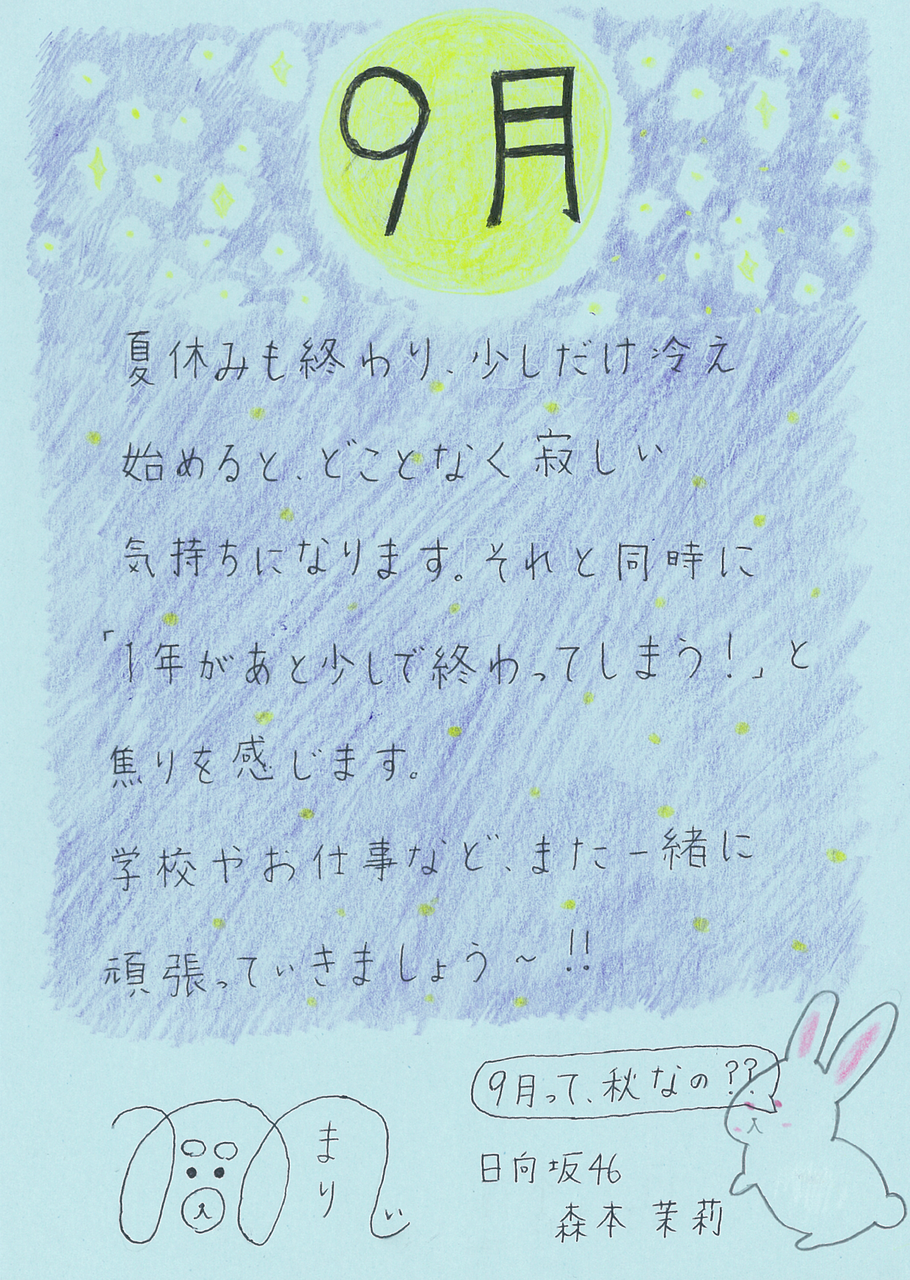 9月
夏休みも終わり、少しだけ冷え
始めると、どことなく寂しい
気持ちになります。それと同時に
「1年があと少しで終わってしまう!」と
焦りを感じます。
学校やお仕事など、また一緒に
頑張っていきましょう~!!
9月って、秋なの??
まりぃ
日向坂46
森本 茉莉